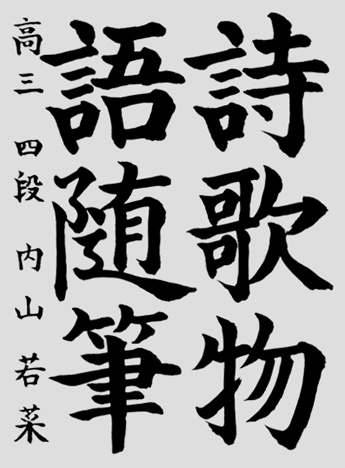 詩歌物
語随筆
高三 四段 内山若菜